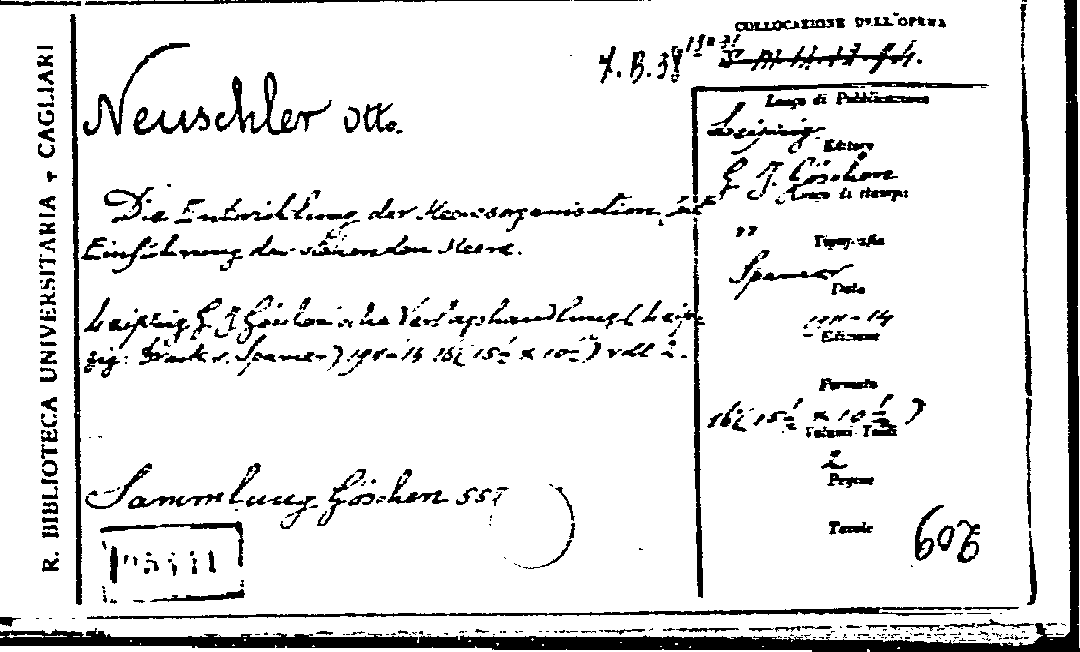 R. BIBLIOTECA UNIVERSITARIA CAGLIARI
COLLOCAZIONE DELL'OPERA
7. B. 38
Neuschler Otto.
Die Entwicklung der Heeresorganisation seit
Einführung der stehenden Heere.
Leipzig G. J. Göschen'sche Verlagshandlung (Leip-
zig: Druck v. Spamer) 1911-14 16( 15½ x 10½ ) voll 2.
Sammlung Göschen 557
Luogo di Pubblicazione
Leipzig
Editore
G. J. Göschen
Luogo di stampa
""
Tipografia
Spamer
Data
14
Edizione
Formato
16( 15½ x 10½ )
Volumi Tomi
2
Pagine
Tavole
608